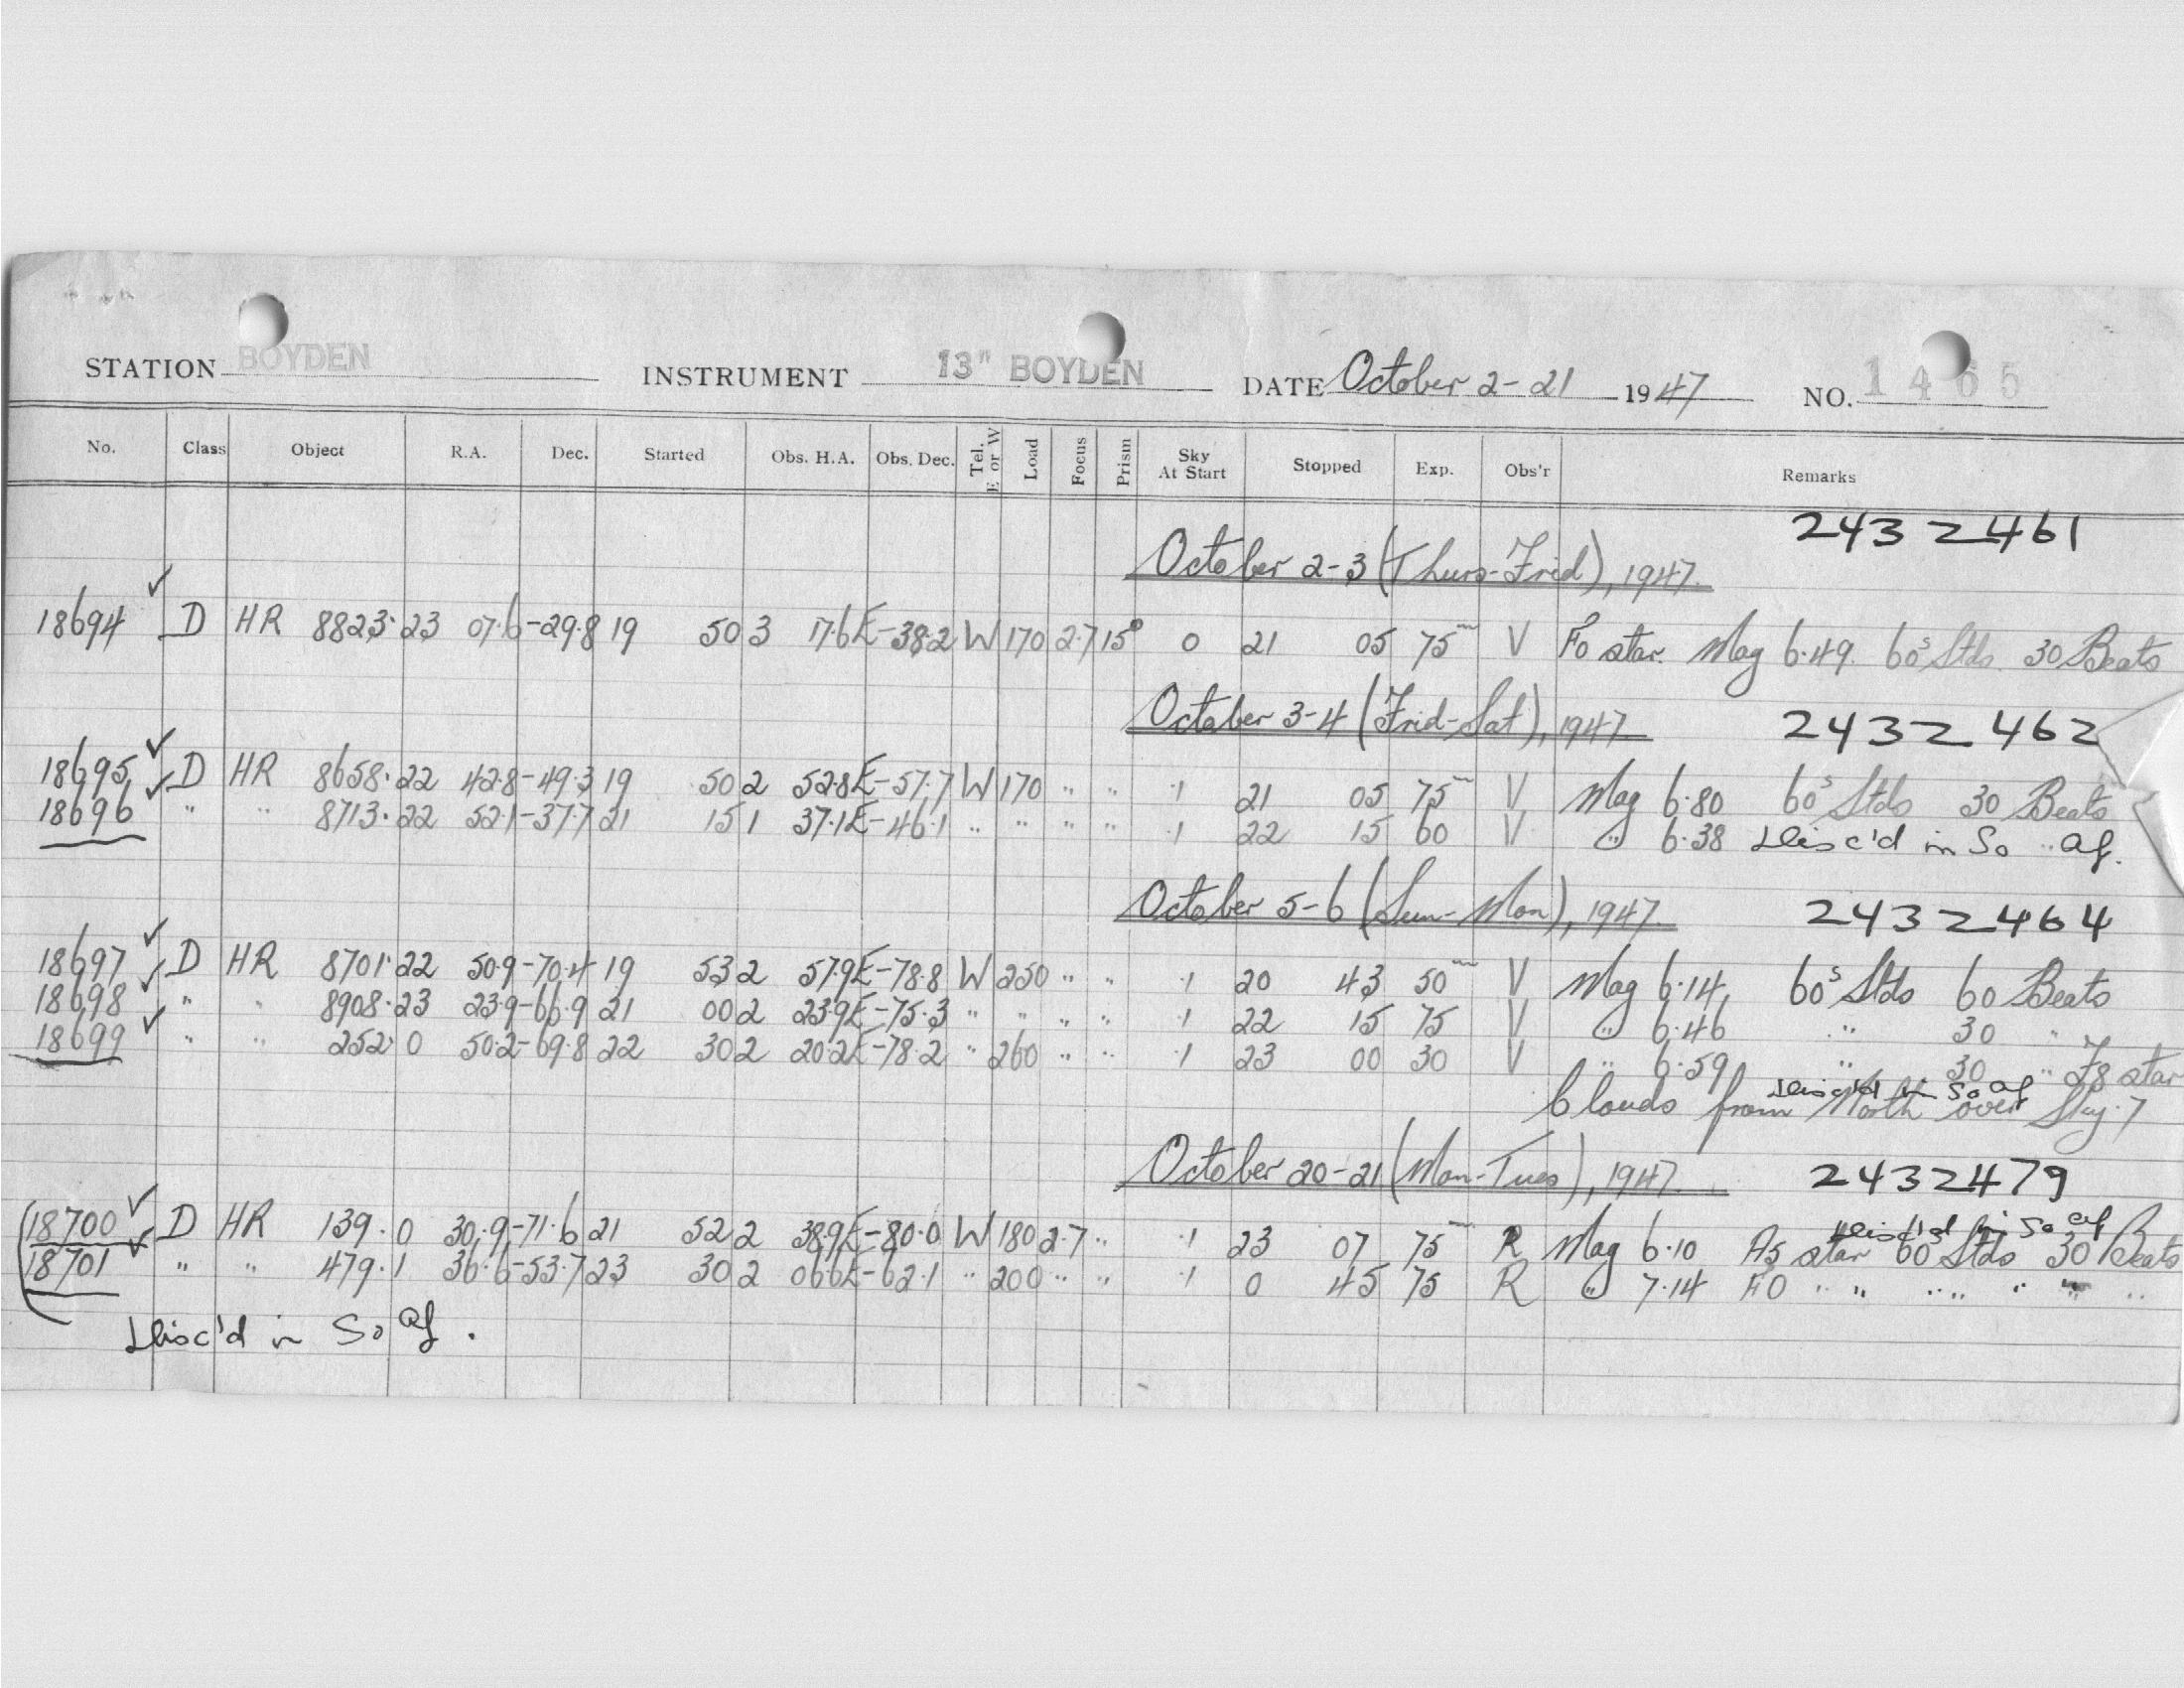 STATION BOYDEN INSTRUMENT 13" BOYDEN DATE October 2-21 1947 NO. 1465
No. Class Object R.A. Dec. Started Obs. H.A. Obs. Dec. Tel. E or W Load Focus Prism Sky At Start Stopped Exp. Obs'r Remarks
2432461
October 2-3 (Thurs-Frid), 1947.
18694 ✓ D HR 8823· 23 07.6 -29.8 19 50 3 17.6E -38.2 W 170 2.7 15° 0 21 05 75m V F0 star. Mag 6.49. 60s Stds. 30 Beats
October 3-4 (Frid-Sat), 1947. 2432462
18695 ✓ D HR 8658· 22 42.8 -49.3 19 50 2 52.8E -57.7 W 170 " " .1 21 05 75m V Mag 6.80 60s Stds 30 Beats
18696 ✓ " " 8713· 22 52.1 -37.7 21 15 1 37.1E -46.1 " " " " .1 22 15 60 V " 6.38 Disc'd in So. Af.
October 5-6 (Sun-Mon), 1947. 2432464
18697 ✓ D HR 8701· 22 50.9 -70.4 19 53 2 57.9E -78.8 W 250 " " .1 20 43 50m V Mag 6.14, 60s Stds 60 Beats
18698 ✓ " " 8908· 23 23.9 -66.9 21 00 2 23.9E -75.3 " " " " .1 22 15 75 V " 6.46 " 30 "
18699 ✓ " " 252· 0 50.2 -69.8 22 30 2 20.2E -78.2 " 260 " " .1 23 00 30 V " 6.59 " 30 " F8 star
Disc'd in So Af
Clouds from North over Sky .7
October 20-21 (Mon-Tues), 1947. 2432479
Disc'd in So Af
18700 ✓ D HR 139· 0 30.9 -71.6 21 52 2 38.9E -80.0 W 180 2.7 " .1 23 07 75m R Mag 6.10 A5 star 60s Stds 30 Beats
18701 ✓ " " 479· 1 36.6 -53.7 23 30 2 06.6E -62.1 " 200 " " .1 0 45 75 R " 7.14 F0 " " " " "
Disc'd in So Af.